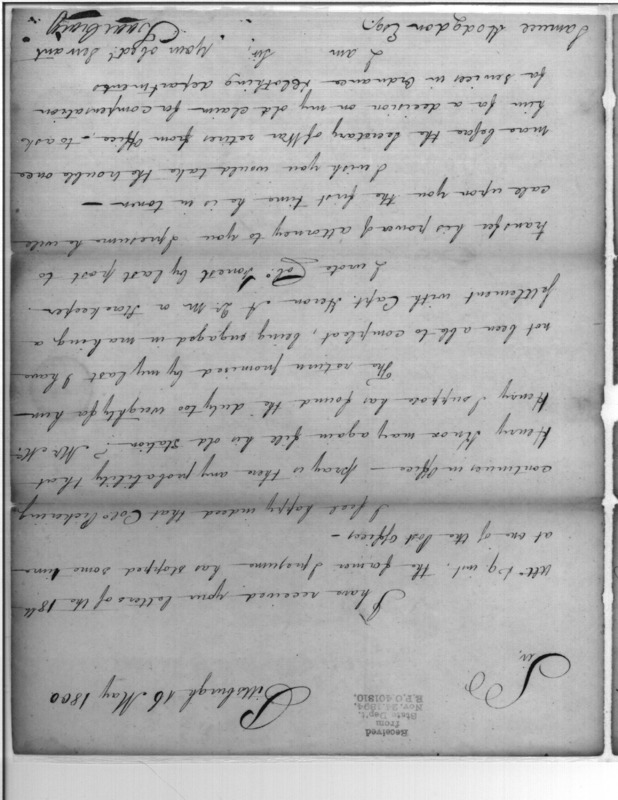 Received
from
State Dep't.
Nov. 24, 1894.
R.P.O. 401810.
Pittsburgh 16 May 1800
Sir,
I have received your letters of the 18th
Ult. & 9 inst. the former I presume has stopped some time
at one of the Post Offices —
I feel happy indeed that Colo Pickering
continues in Office — pray is there any probability that
Henry Knox may again fill his old Station? Mr Mc
Henry I suppose has found the duty too weighty for him
The return promised by my last I have
not been able to compleat, being engaged in making a
settlement with Capt. Heron A Q. M. & Storekeeper.
I wrote Col. Forrest by last post to
transfer his power of attorney to you I presume he will
call upon you the first time he is in town —
I wish you would take the trouble once
more before the Secretary of War retires from Office, to ask
him for a decision on my old claim for compensation
for services in Ordnance & Clothing departments
I am
Sir,
Your Obedt. Servant
Isaac Craig
Samuel Hodgdon Esq.